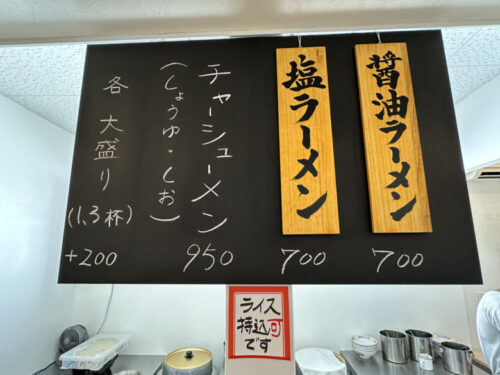 醤油ラーメン
700
塩ラーメン
700
チャーシューメン
950
(しょうゆ・しお)
各 大盛り
(1,3杯)
+200
ライス
持込可
です